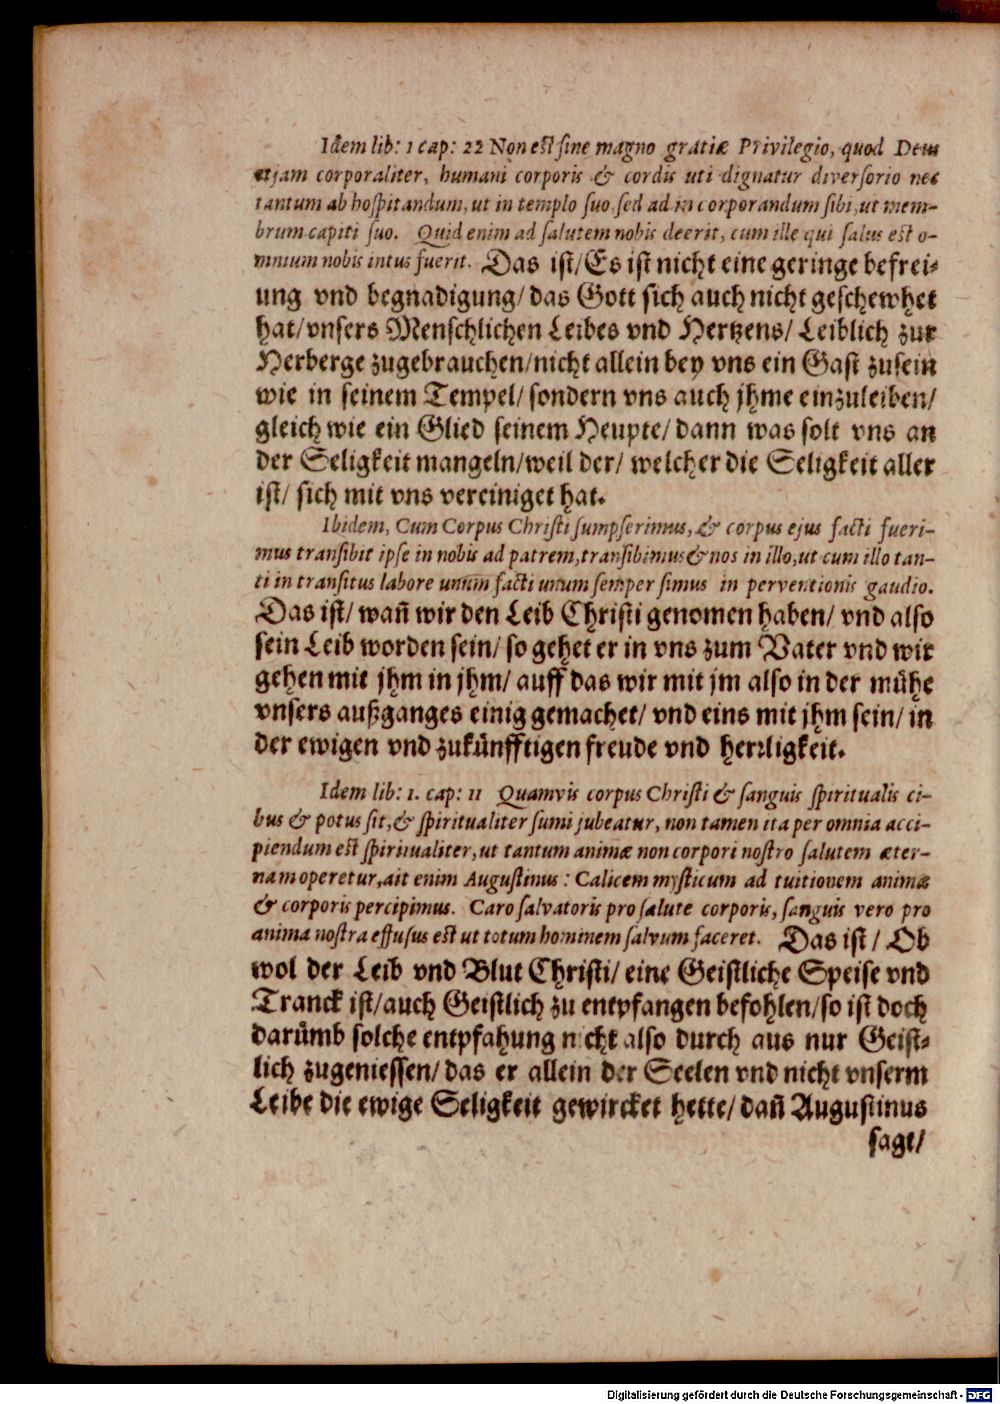 Idem lib: 1 cap: 22 Non est sine magno gratiæ Privilegio, quod Deus
etjam corporaliter, humani corporis & cordis uti dignatur diversorio nec
tantum ab hospitandum, ut in templo suo, sed ad in corporandum sibi, ut mem-
brum capiti suo. Quid enim ad salutem nobis deerit, cum ille qui salus est o-
mnium nobis intus fuerit. Das ist/ Es ist nicht eine geringe befrei-
ung vnd begnadigung/ das Gott sich auch nicht geschewhet
hat/ vnsers Menschlichen Leibes vnd Hertzens/ Leiblich zur
Herberge zugebrauchen/ nicht allein bey vns ein Gast zusein
wie in seinem Tempel/ sondern vns auch jhme einzuleiben/
gleich wie ein Glied seinem Heupte/ dann was solt vns an
der Seligkeit mangeln/ weil der/ welcher die Seligkeit aller
ist/ sich mit vns vereiniget hat.
Ibidem, Cum Corpus Christi sumpserimus, & corpus ejus facti fueri-
mus transibit ipse in nobis ad patrem, transibimus & nos in illo, ut cum illo tan-
ti in transitus labore unũm facti unum semper simus in perventionis gaudio.
Das ist/ wañ wir den Leib Christi genomen haben/ vnd also
sein Leib worden sein/ so gehet er in vns zum Vater vnd wir
gehen mit jhm in jhm/ auff das wir mit jm also in der mühe
vnsers außganges einig gemachet/ vnd eins mit jhm sein/ in
der ewigen vnd zukünfftigen freude vnd herrligkeit.
Idem lib: 1. cap: 11 Quamvis corpus Christi & sanguis spiritualis ci-
bus & potus sit, & spiritualiter sumi jubeatur, non tamen ita per omnia acci-
piendum est spiritualiter, ut tantum animæ non corpori nostro salutem æter-
nam operetur, ait enim Augustinus: Calicem mysticum ad tuitionem animæ
& corporis percipimus. Caro salvatoris pro salute corporis, sanguis vero pro
anima nostra effusus est ut totum hominem salvum faceret. Das ist/ Ob
wol der Leib vnd Blut Christi/ eine Geistliche Speise vnd
Tranck ist/ auch Geistlich zu entpfangen befohlen/ so ist doch
darümb solche entpfahung nicht also durch aus nur Geist-
lich zugeniessen/ das er allein der Seelen vnd nicht vnserm
Leibe die ewige Seligkeit gewircket hette/ dañ Augustinus
sagt/
Digitalisierung gefördert durch die Deutsche Forschungsgemeinschaft - DFG